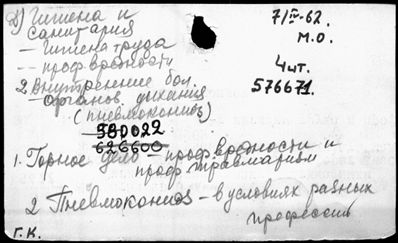 2) Гигиена и
санитария
– гигиена труда
-- проф.вредности
2. Внутренние бол.
– органов дыхания
(пневмокониоз)
7/IV-62.
М.О.
4 шт.
576671.
580022
626600
1. Горное дело – проф.вредности и
проф.травматизм
2 Пневмокониоз – в условиях разных
профессий
Г.К.